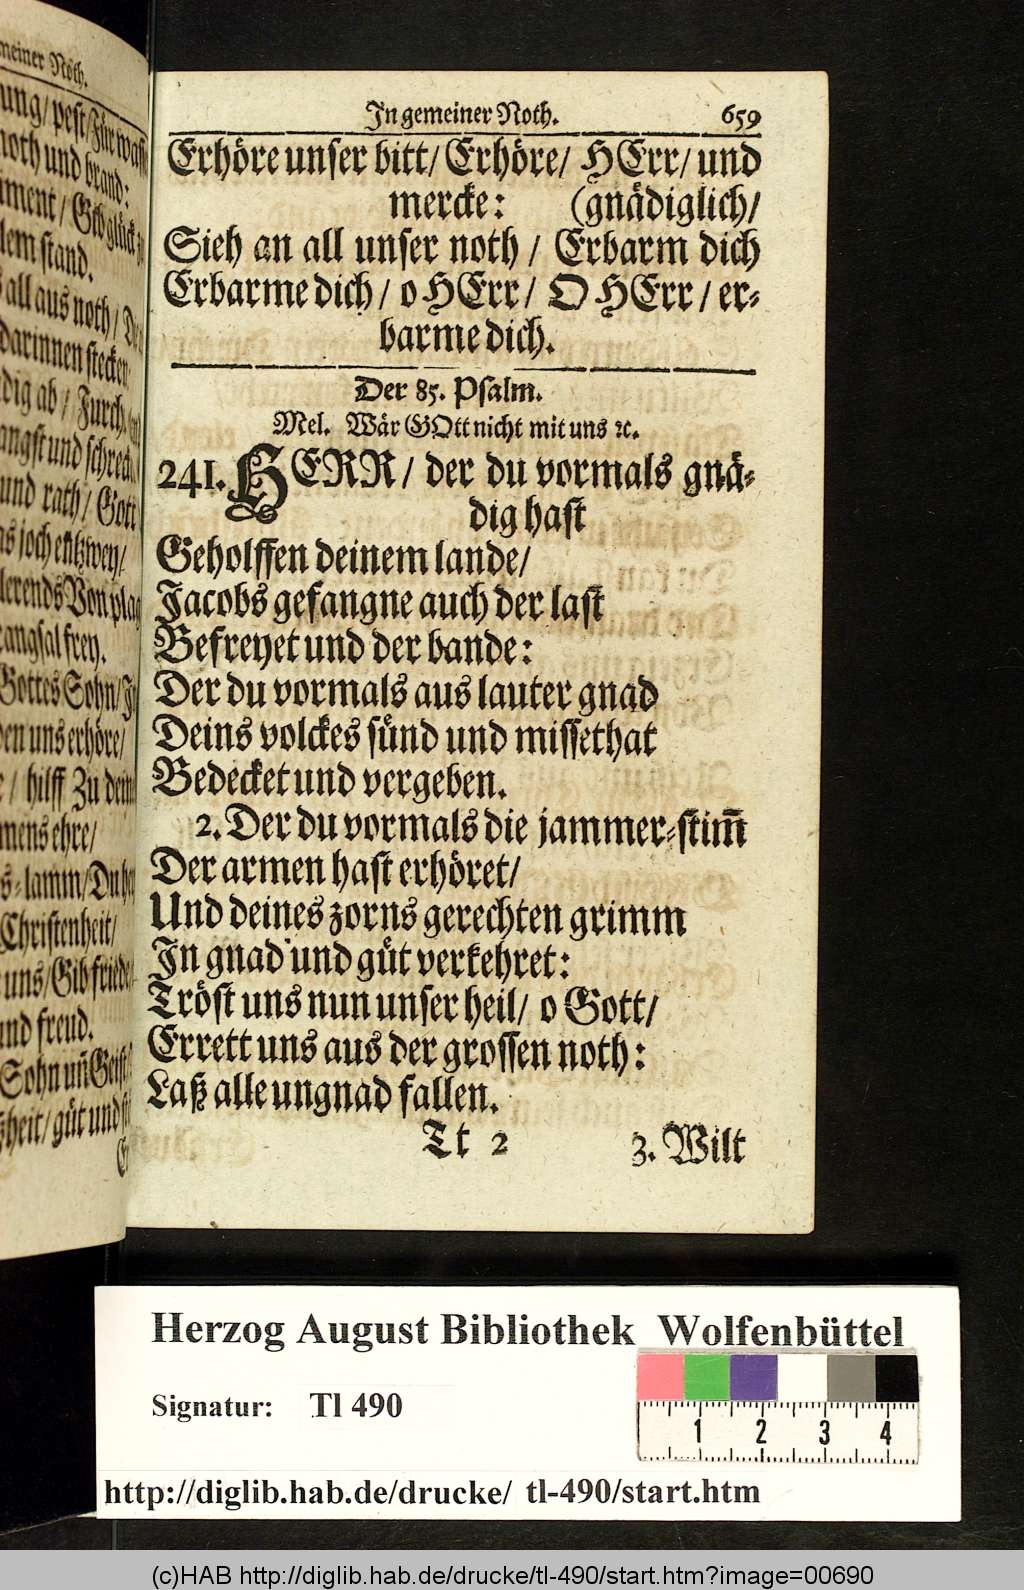 meiner Noth.
noth und brand:
lem stand.
all aus noth/
darinnen stecken
dig ab/ Furch
angst und schreck
und rath/ Gott
as joch entzwey/
Von plag
rangsal frey.
Gottes Sohn/
en uns erhöre/
/ hilff Zu dein
mens ehre/
s-lamm/ Du
Christenheit/
uns/ Gib friede
und freud.
Sohn uñ Geist
heit/ güt und
In gemeiner Noth. 659
Erhöre unser bitt/ Erhöre/ HErr/ und
mercke: (gnädiglich/
Sieh an all unser noth / Erbarm dich
Erbarme dich / o HErr / O HErr / er-
barme dich.
Der 85. Psalm.
Mel. Wär GOtt nicht mit uns ꝛc.
241. HERR / der du vormals gnä-
dig hast
Geholffen deinem lande/
Jacobs gefangne auch der last
Befreyet und der bande:
Der du vormals aus lauter gnad
Deins volckes sünd und missethat
Bedecket und vergeben.
2. Der du vormals die jammer-stim̃
Der armen hast erhöret/
Und deines zorns gerechten grimm
In gnad und güt verkehret:
Tröst uns nun unser heil/ o Gott/
Errett uns aus der grossen noth:
Laß alle ungnad fallen.
Tt 2 3. Wilt
Herzog August Bibliothek Wolfenbüttel
Signatur: Tl 490
1 2 3 4
http://diglib.hab.de/drucke/ tl-490/start.htm
(c)HAB http://diglib.hab.de/drucke/tl-490/start.htm?image=00690